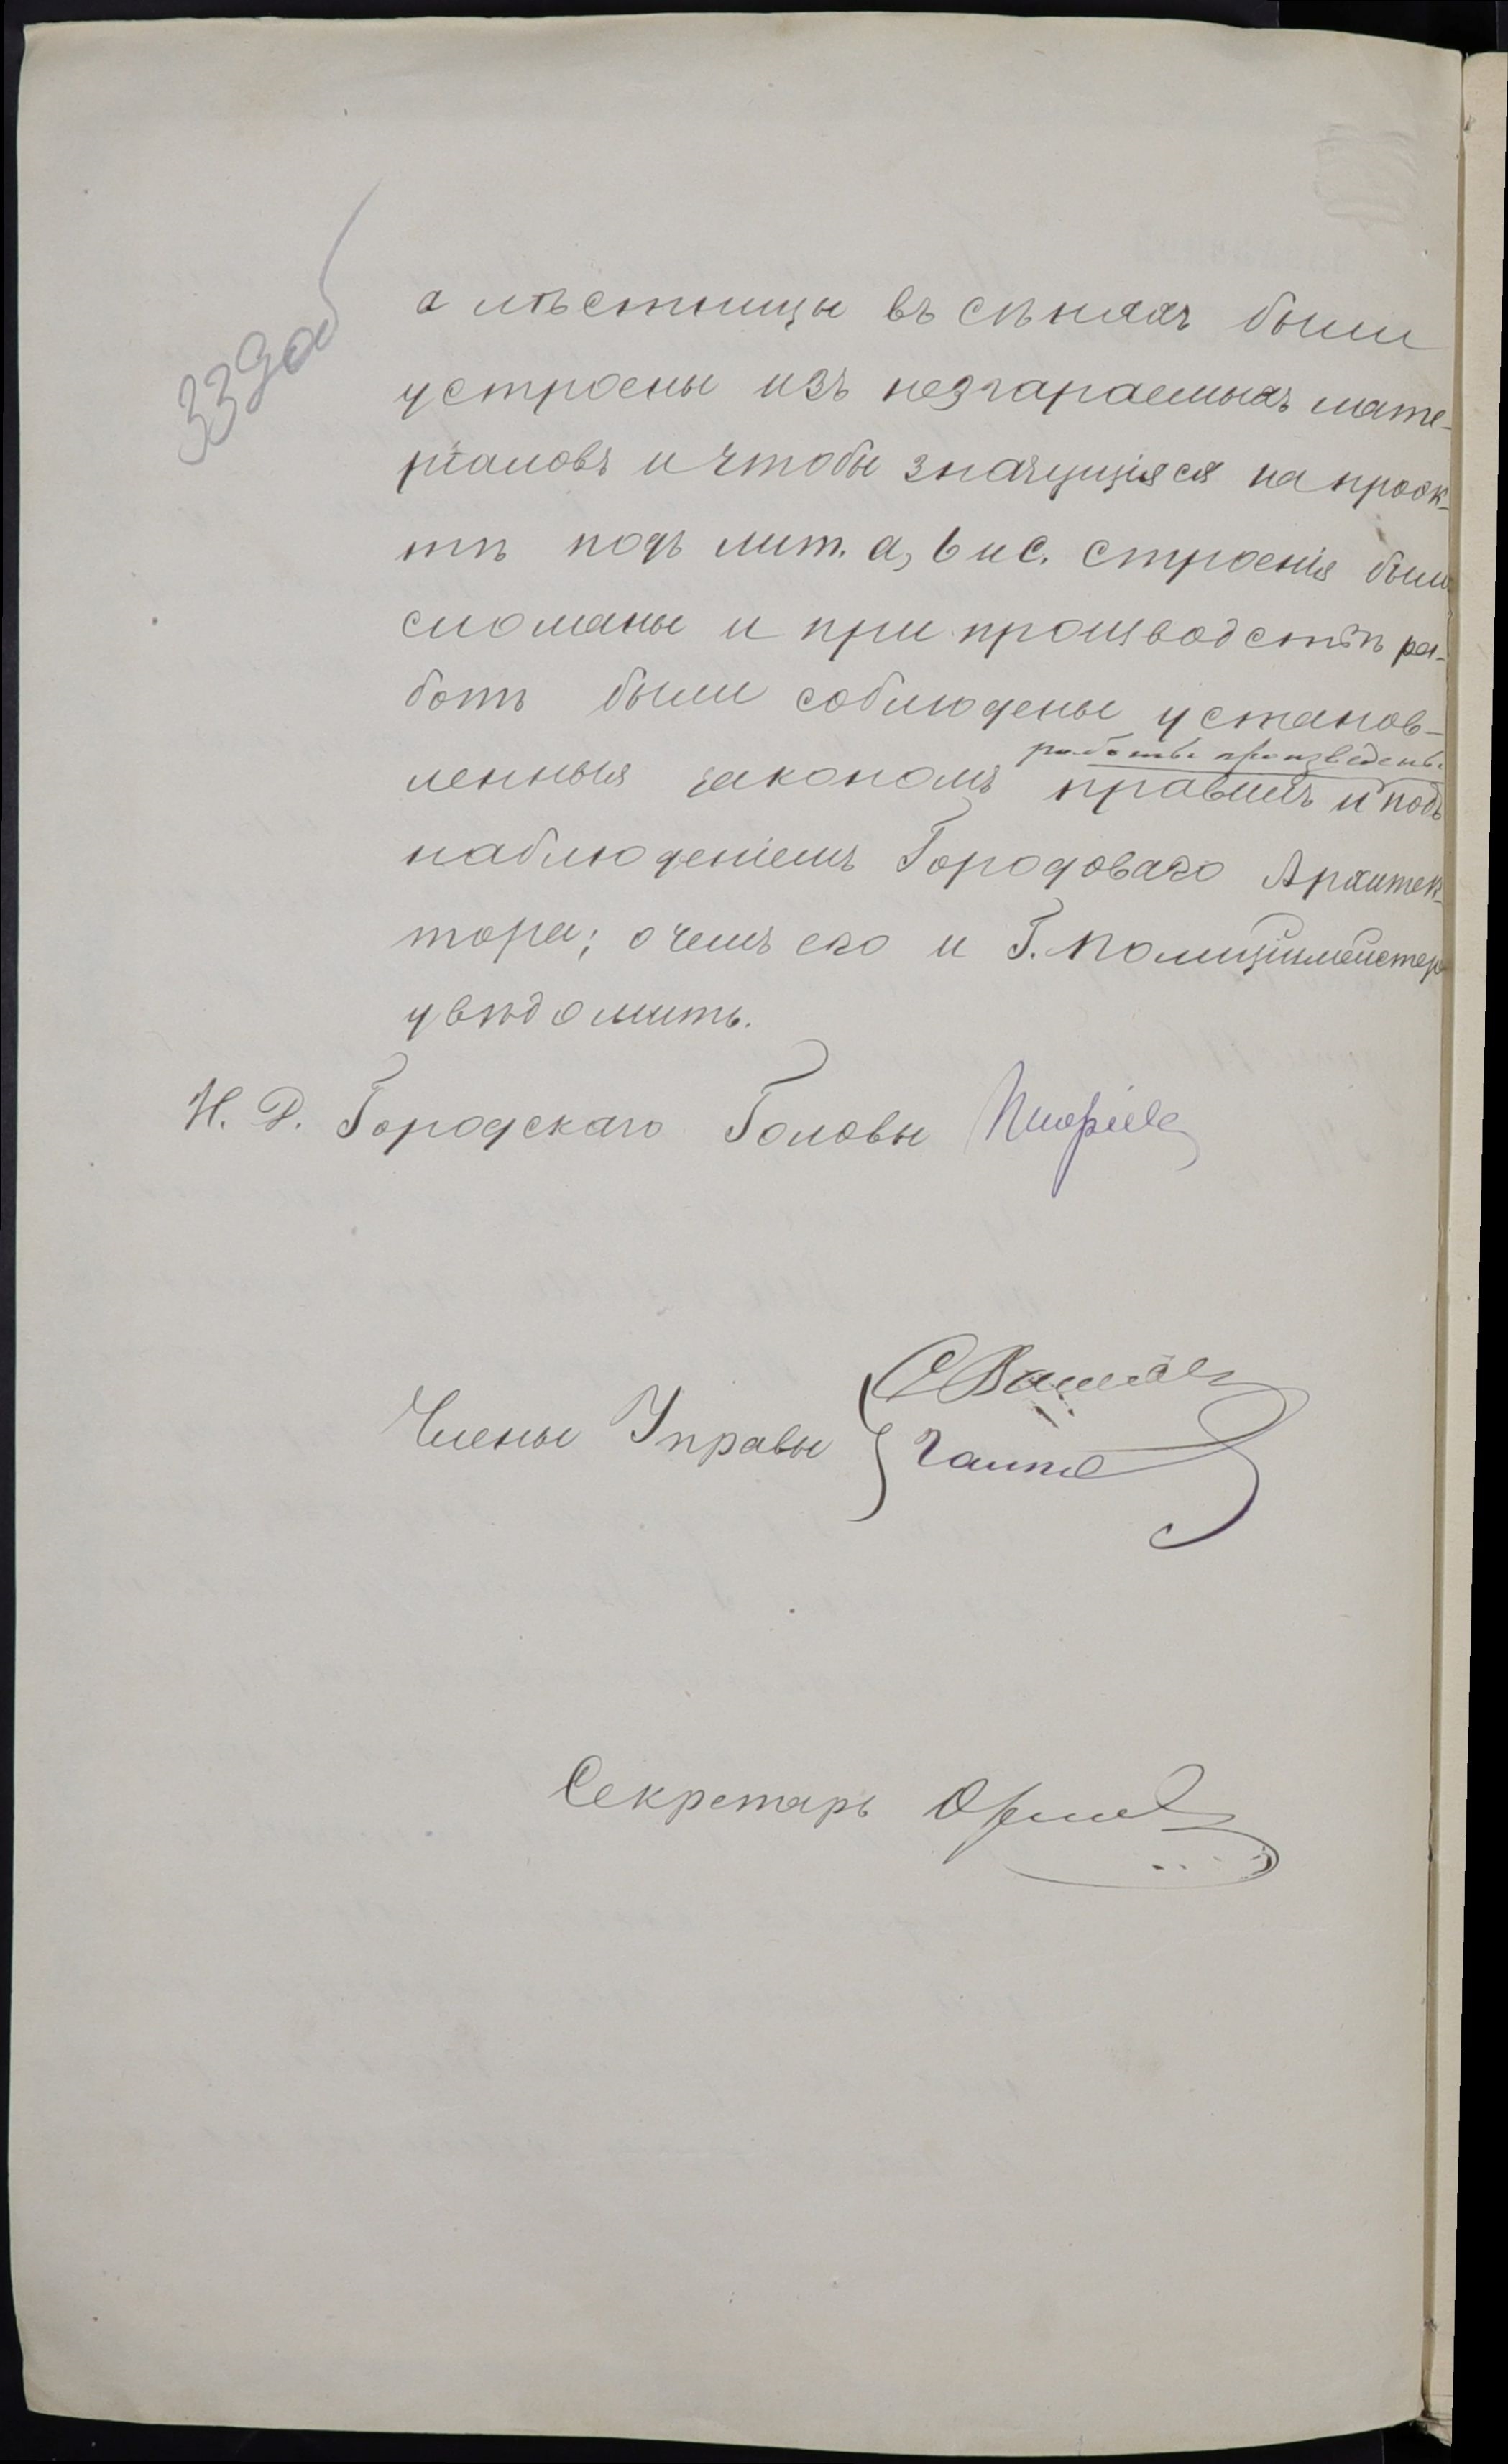 339об
а лѣстницы въ сѣняхъ были
устроены изъ незгараемыхъ мате-
ріаловъ и чтобы значущіяся на проэк-
тѣ подъ лит. а, b и с. строенія были
сломаны и при производствѣ ра-
ботъ были соблюдены установ-
работы произведены
ленныя закономъ правила и подъ
наблюденіемъ Городоваго Архитек-
тора; о чемъ его и Г. Полиціймейстера
увѣдомить.
И. Д. Городскаго Головы
Члены Управы
Секретарь